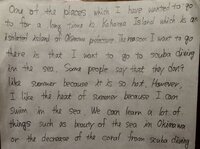 One of the places which I have wanted to go
to for a long time is Kahama Island which is an
isolated island of Okinawa prefecture. The reason I want to go
there is that I want to go to scuba diving
in the sea. Some people say that they don't
like summer because it is so hot. However,
I like the heat of summer because I can
swim in the sea. We can learn a lot of
things such as beauty of the sea in Okinawa
or the decrease of the coral from scuba diving